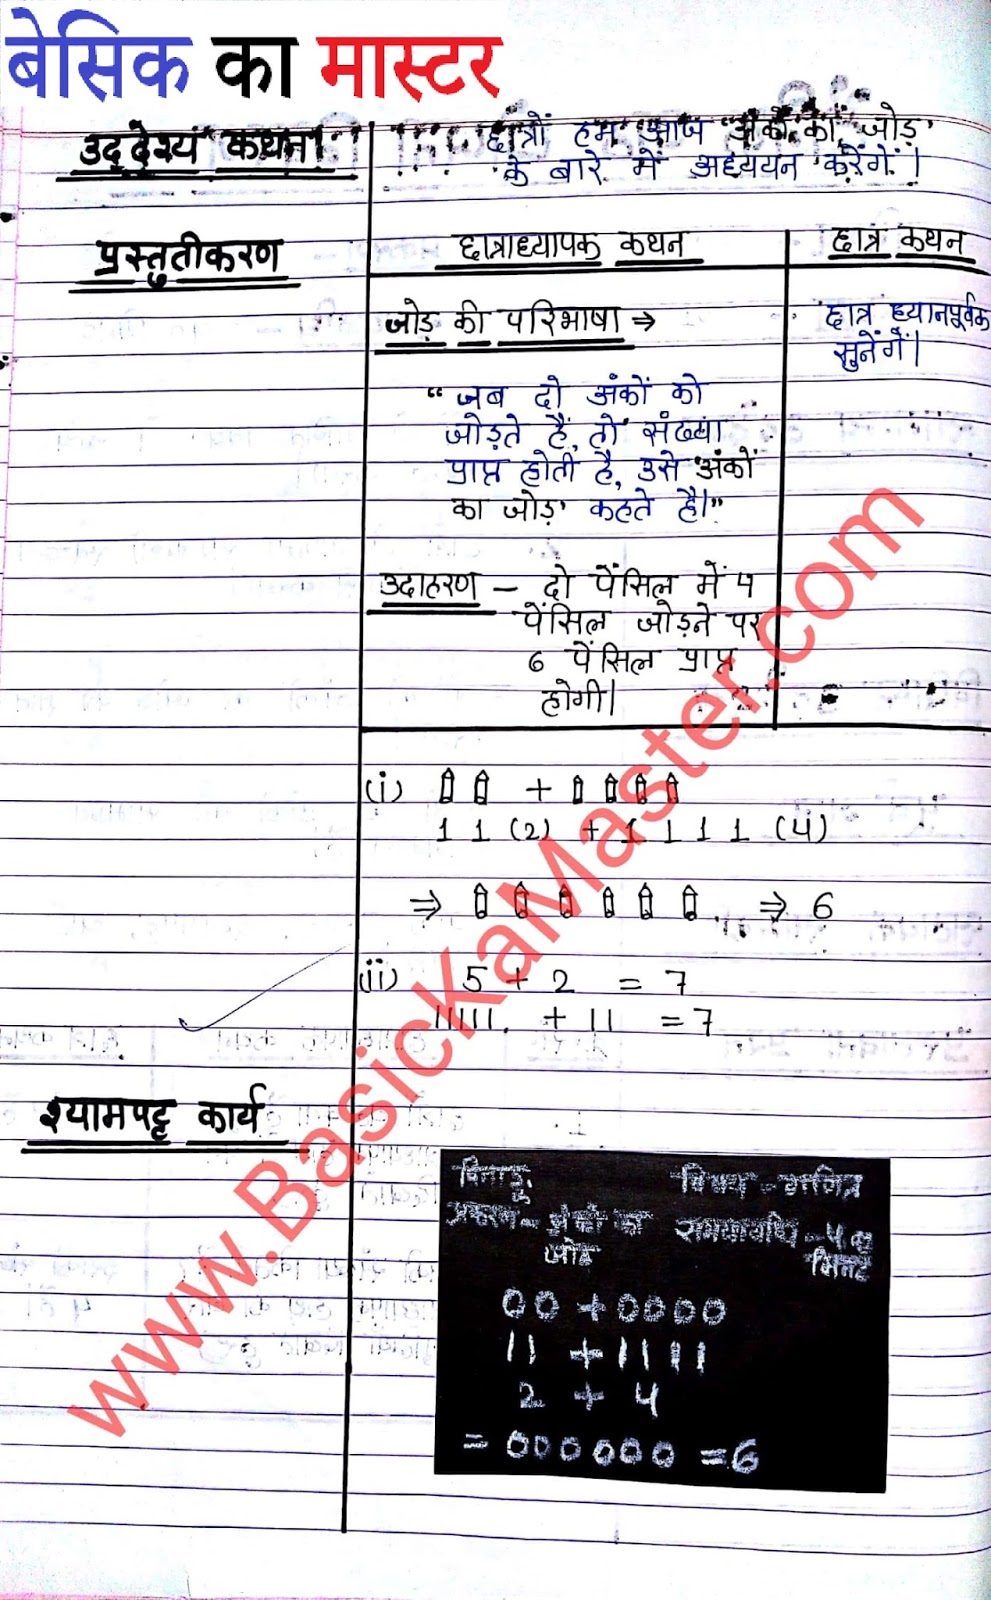 बेसिक का मास्टर
उद्देश्य कथन
छात्रों हम आज 'अंकों का जोड़'
के बारे में अध्ययन करेंगें।
प्रस्तुतीकरण
छात्राध्यापक कथन
छात्र कथन
जोड़ की परिभाषा ⇒
छात्र ध्यानपूर्वक
सुनेंगें।
“जब दो अंकों को
जोड़ते हैं, तो संख्या
प्राप्त होती है, उसे 'अंकों
का जोड़' कहते है।”
उदाहरण – दो पेंसिल में 4
पेंसिल जोड़ने पर
6 पेंसिल प्राप्त
होगी।
(i) +
1 1 (2) + 1 1 1 1 (4)
⇒ ⇒ 6
(ii) 5 + 2 = 7
11111. + 11 = 7
श्यामपट्ट कार्य
दिनांक:
विषय - गणित
प्रकरण - अंकों का
जोड़
समयावधि - 40
मिनट
00 + 0000
11 + 1111
2 + 4
= 000000 = 6
www.BasicKaMaster.com